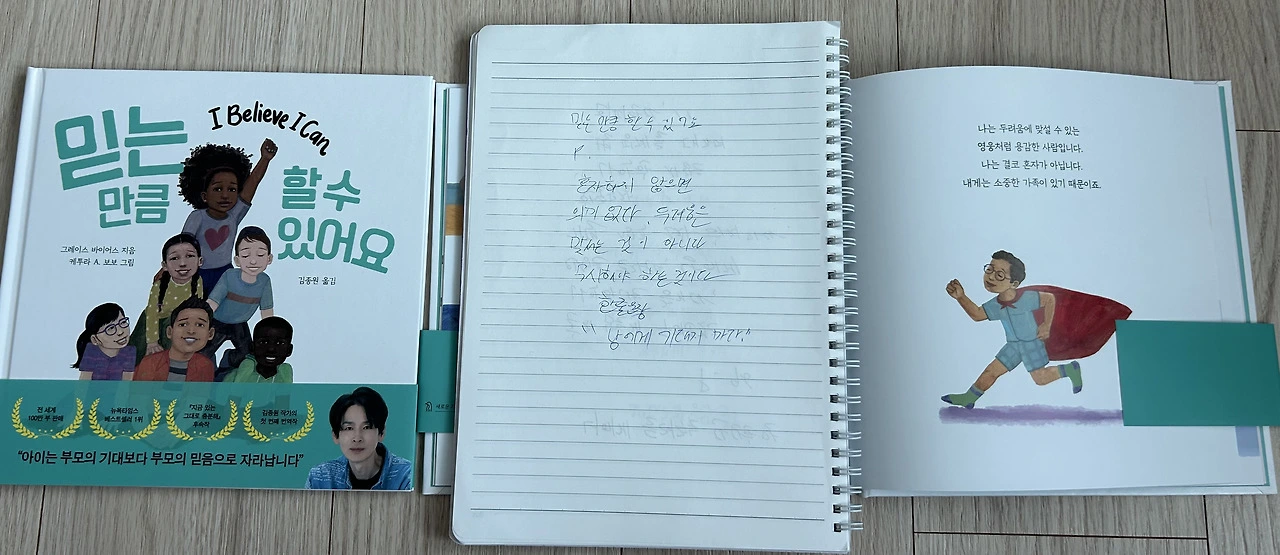 I Believe I Can
믿는
만큼
할 수
있어요
그레이스 바이어스 지음
케투라 A. 보보 그림
김종원 옮김
전 세계
100만 부 판매
뉴욕타임스
베스트셀러 1위
『지금 있는
그대로 충분해』
후속작
김종원 작가의
첫 번째 번역작
"아이는 부모의 기대보다 부모의 믿음으로 자라납니다"
믿는 만큼 할 수 있어요
P.
혼자하지 않으면
의미 없다. 두려움은
맞서는 것이 아니다
무시해야 하는 것이다
"남에게 기대지 마라"
나는 두려움에 맞설 수 있는
영웅처럼 용감한 사람입니다.
나는 결코 혼자가 아닙니다.
내게는 소중한 가족이 있기 때문이죠.